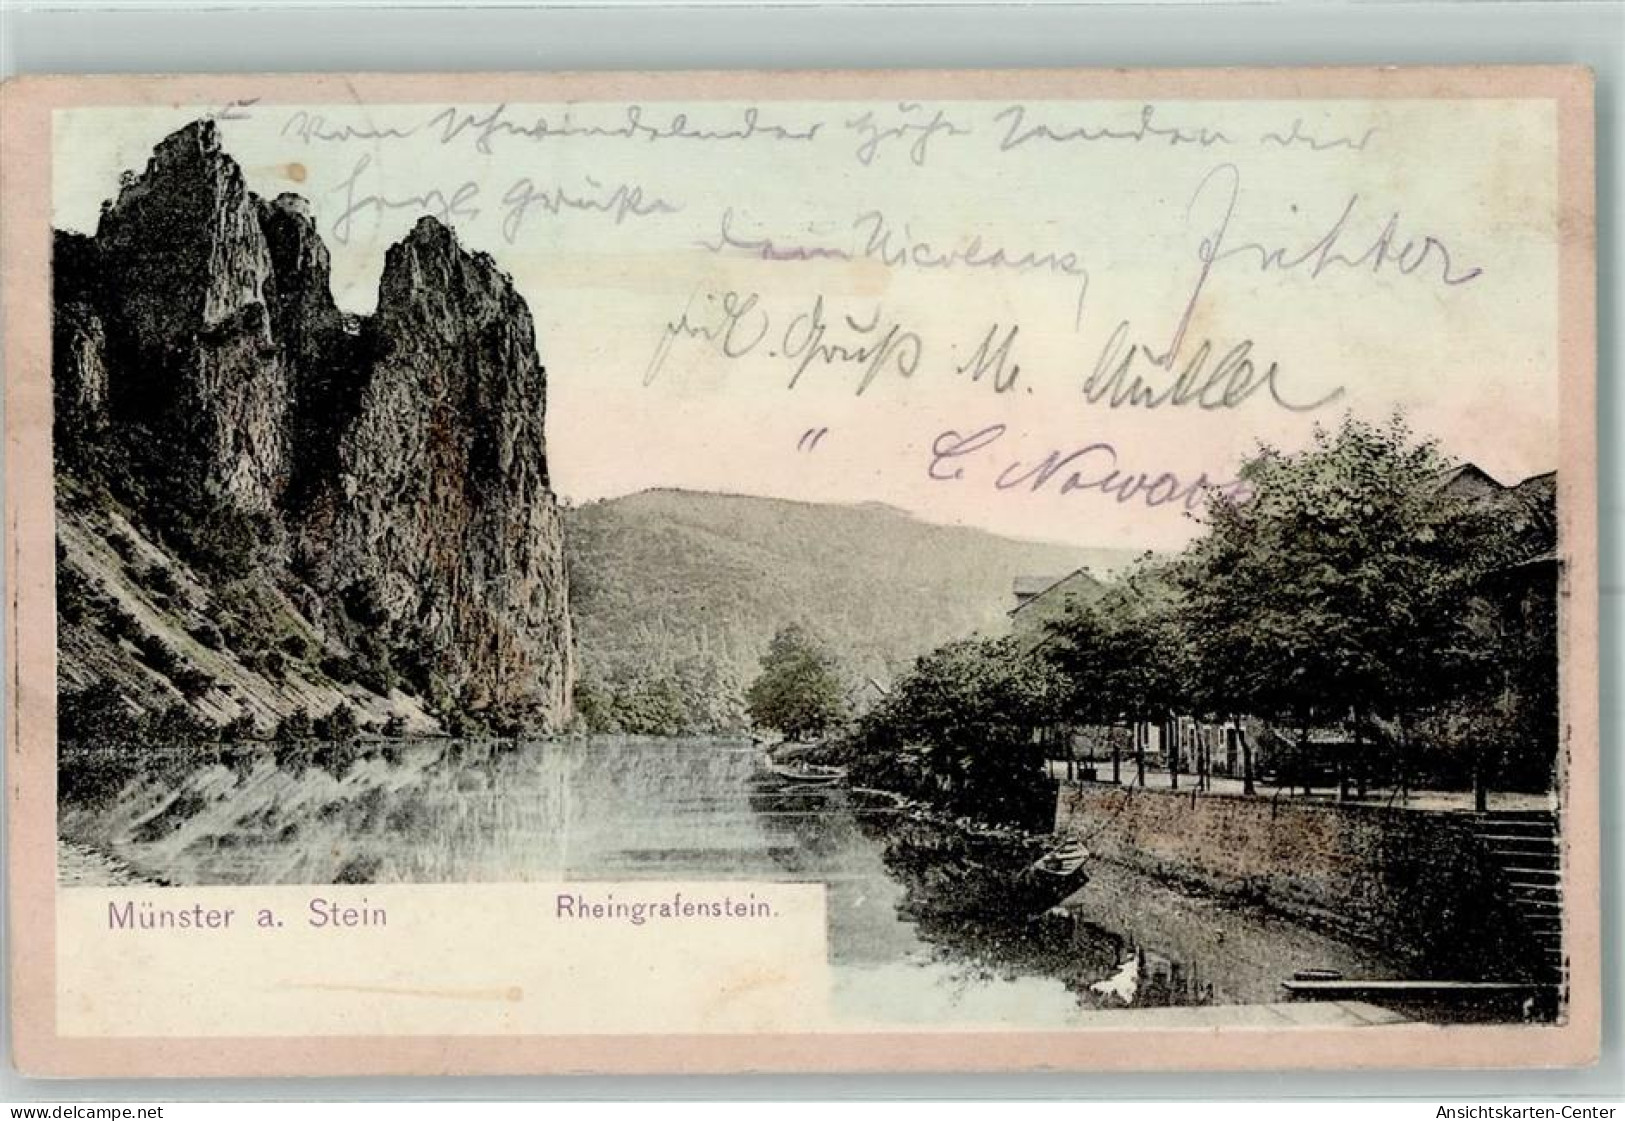 Von schwindelnder Höhe senden dir
herzl Grüße
dein Nicolaus Richter
frdl. Gruß M. Müller
" C Nowack
Münster a. Stein
Rheingrafenstein.
www.delcampe.net
Ansichtskarten-Center